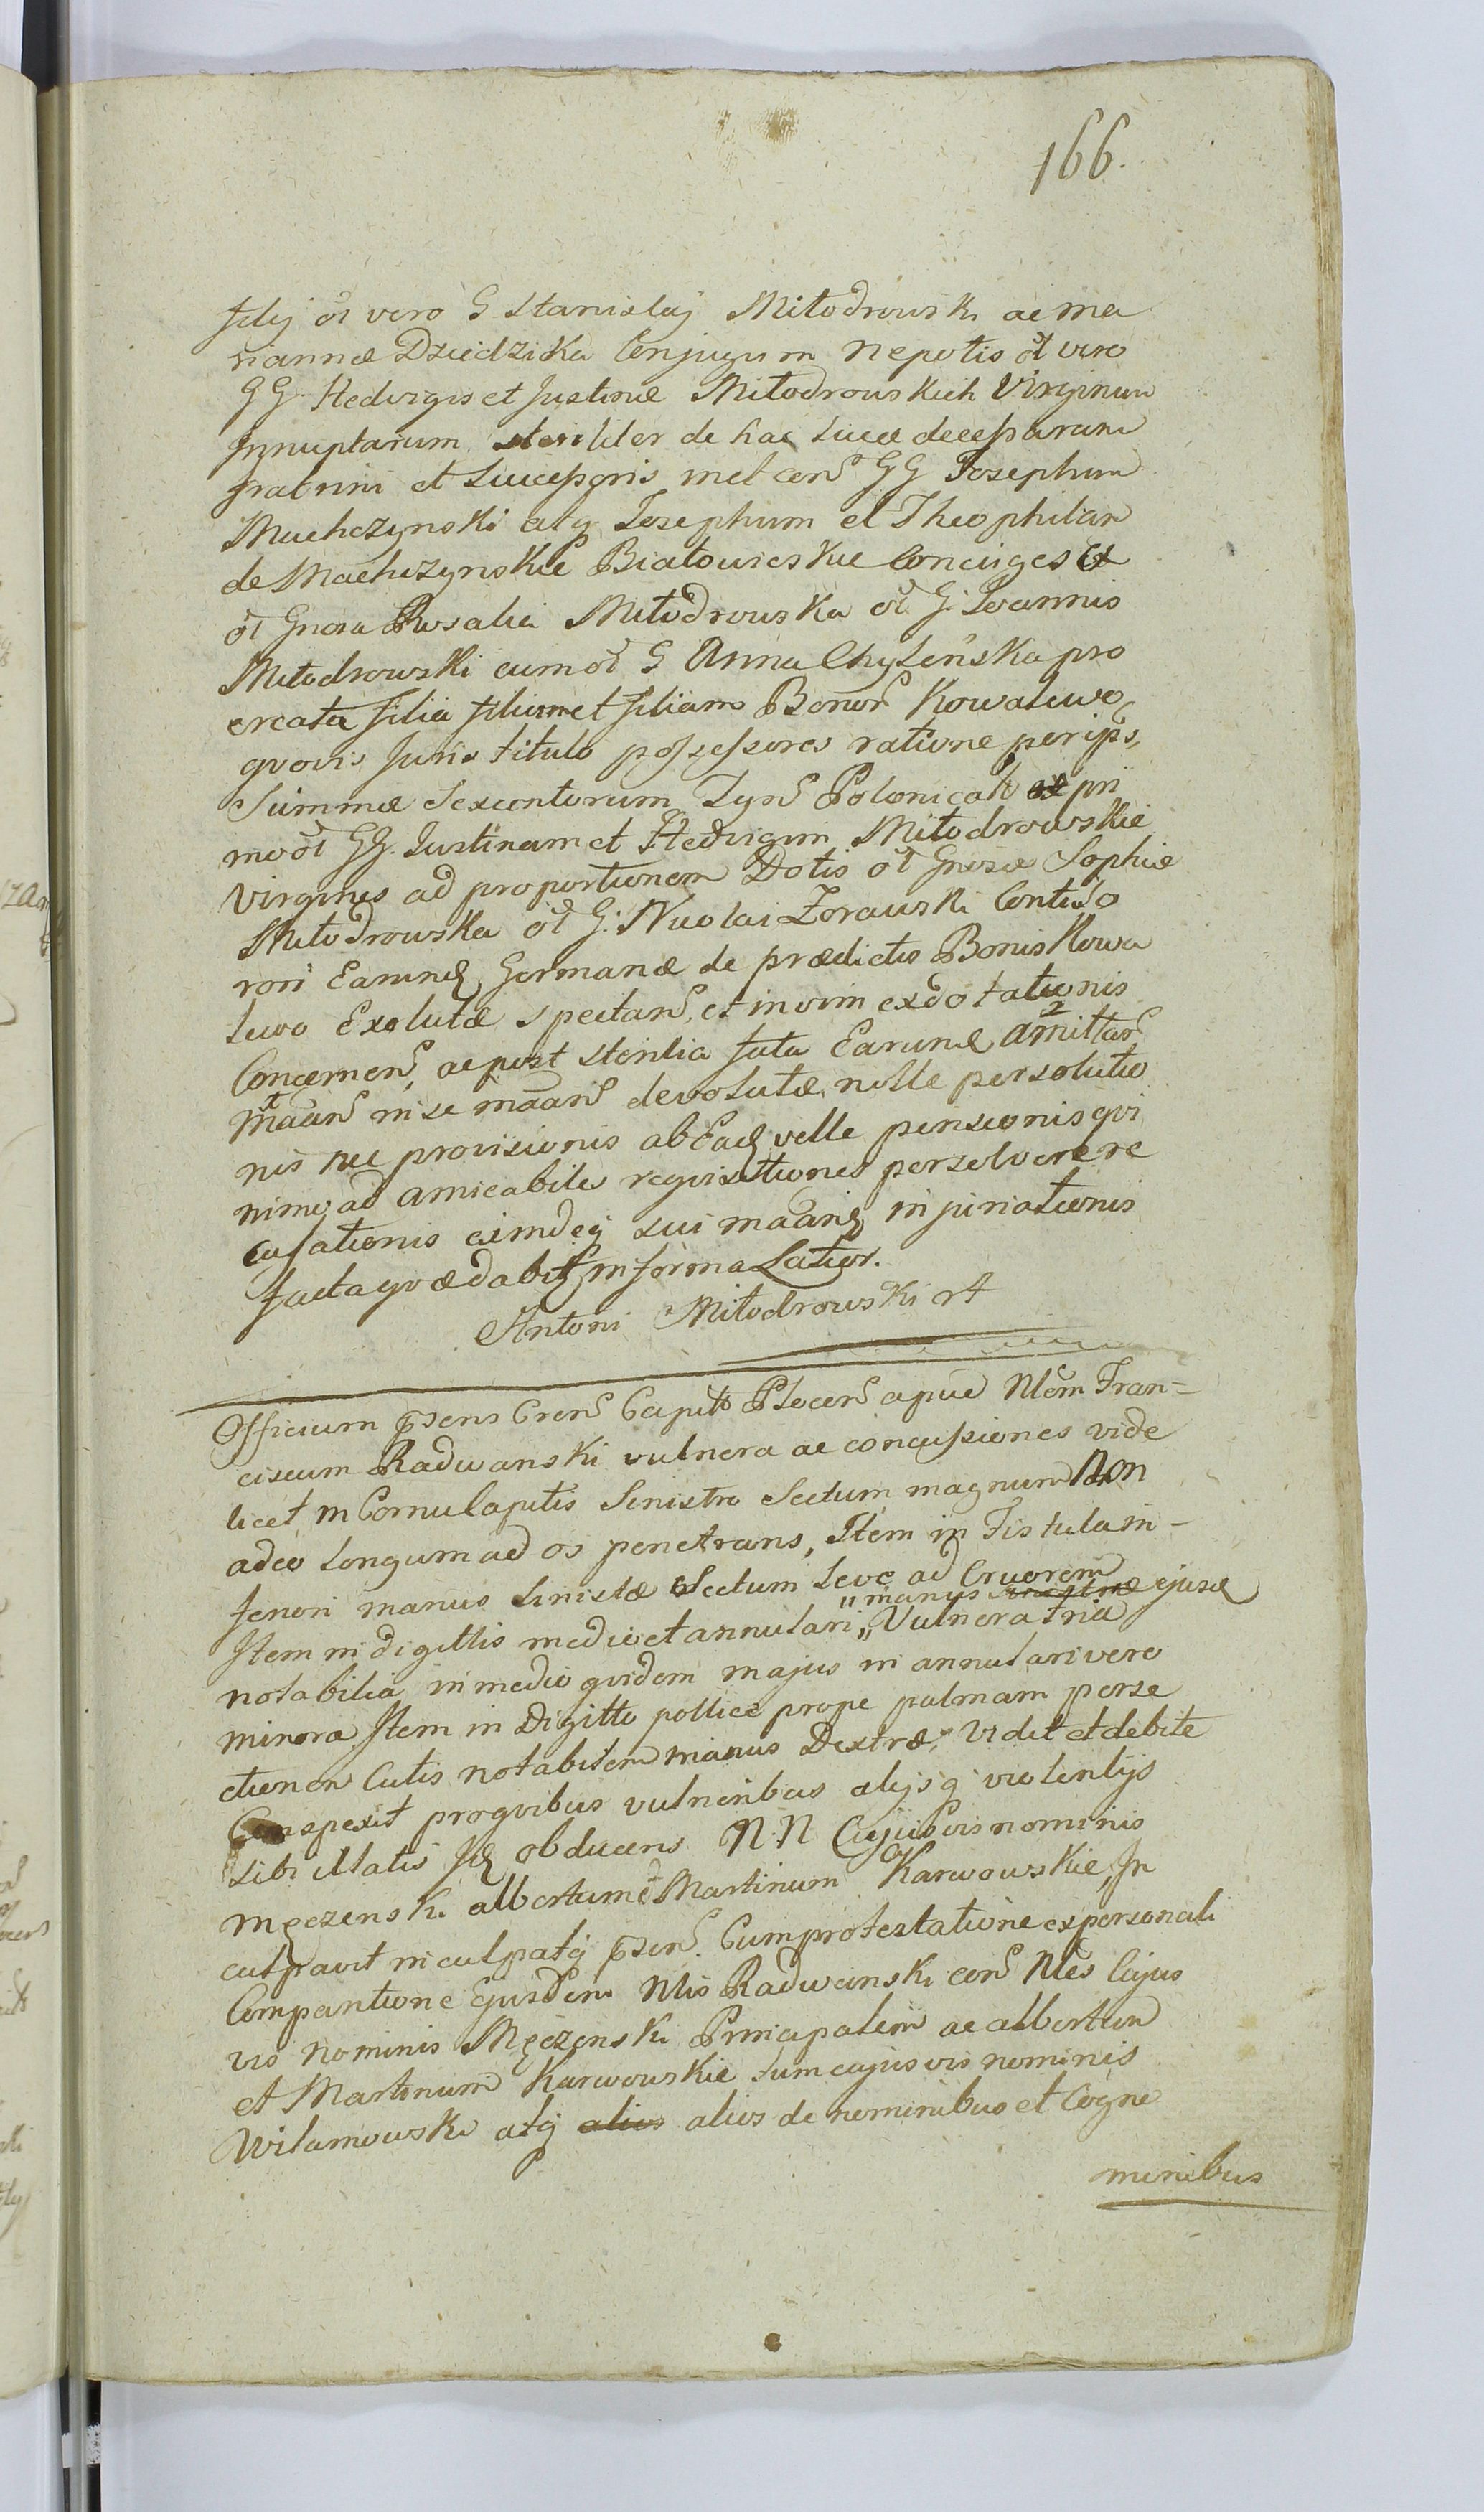 166.
filij ol vero G Stanislaj Miłodrowski ac Ma
riannæ Dziedzika Conjugum Nepotis ol vero
GG. Hedvigis et Justinæ Miłodrowskich Virginum
Innuptarum steriliter de hac Luce decessarum
fratrini et Successoris met cen GG Josephum
Machczynski atq Josephum et Theophilam
de Machczynskie Białowieskie Conciuges
ol Gnosa Rosalia Miłodrowska ol G. Joannis
Miłodrowski cum ol G Anna Chylenska pro
creata filia filium et filiam Bonor Kowalewo
qvovis Juris titulo possessores ratione per ips
Summæ Sexcentorum Tyn Polonicali ex pri
mo ol GG. Justinam et Hedvigim Miłodrowskie
Virgines ad proportionem Dotis ol Gnosæ Sophiæ
Miłodrowska ol G. Nicolai Żorawski Contho
rori Earund Germanæ de prædictis Bonis Kowa
lewo Exolutæ spectan, et in vim exdotationis
Concernen, ac post sterilia fata Earund amittar
maan in se maan devolutæ nolle persolutio
nis nec provisionis ab Ead velle pensionis qvi
nimo ad amicabiles reqvisitiones persolvere re
cusationis eimdeq sui maang injuriationis
facta qvæ dabit in forma Latior.
Antoni Miłodrowski
Officium psens Cren Capit Plocen apud Nlem Fran=
ciscum Radwanski vulnera ac concussiones vide
licet in Cornu Capitis Sinistro Sectum magnum Non
adeo longum ad os penetrans, Item in Fistula in-
feriori manus Sinistæ Sectum leve ad Cruorem
manus sinistræ ejusd
Item in digittis medio et annulari „ Vulnera tria
notabilia in medio qvidem majus in annulari vero
minora Item in Digitto pollice prope palmam perse
ctionem Cutis notabilem manus Dextræ, Vidit et debite
Conspexit pro qvibus vulneribus alijsq violentijs
sibi illatis Id obducens N. N Cujusvis nominis
Męczenski albertum et Martinum Karwowskie, In
culpavit inculpatq psen. Cum protestatione ex personali
Comparitione Ejusdem Nlis Radwanski con Nles Cujus
vis nominis Męczenski Principalem ac albertum
et Martinum Karwowskie tum cujusvis nominis
Wilamowski atq alios alios de nominibus et Cogno
minibus